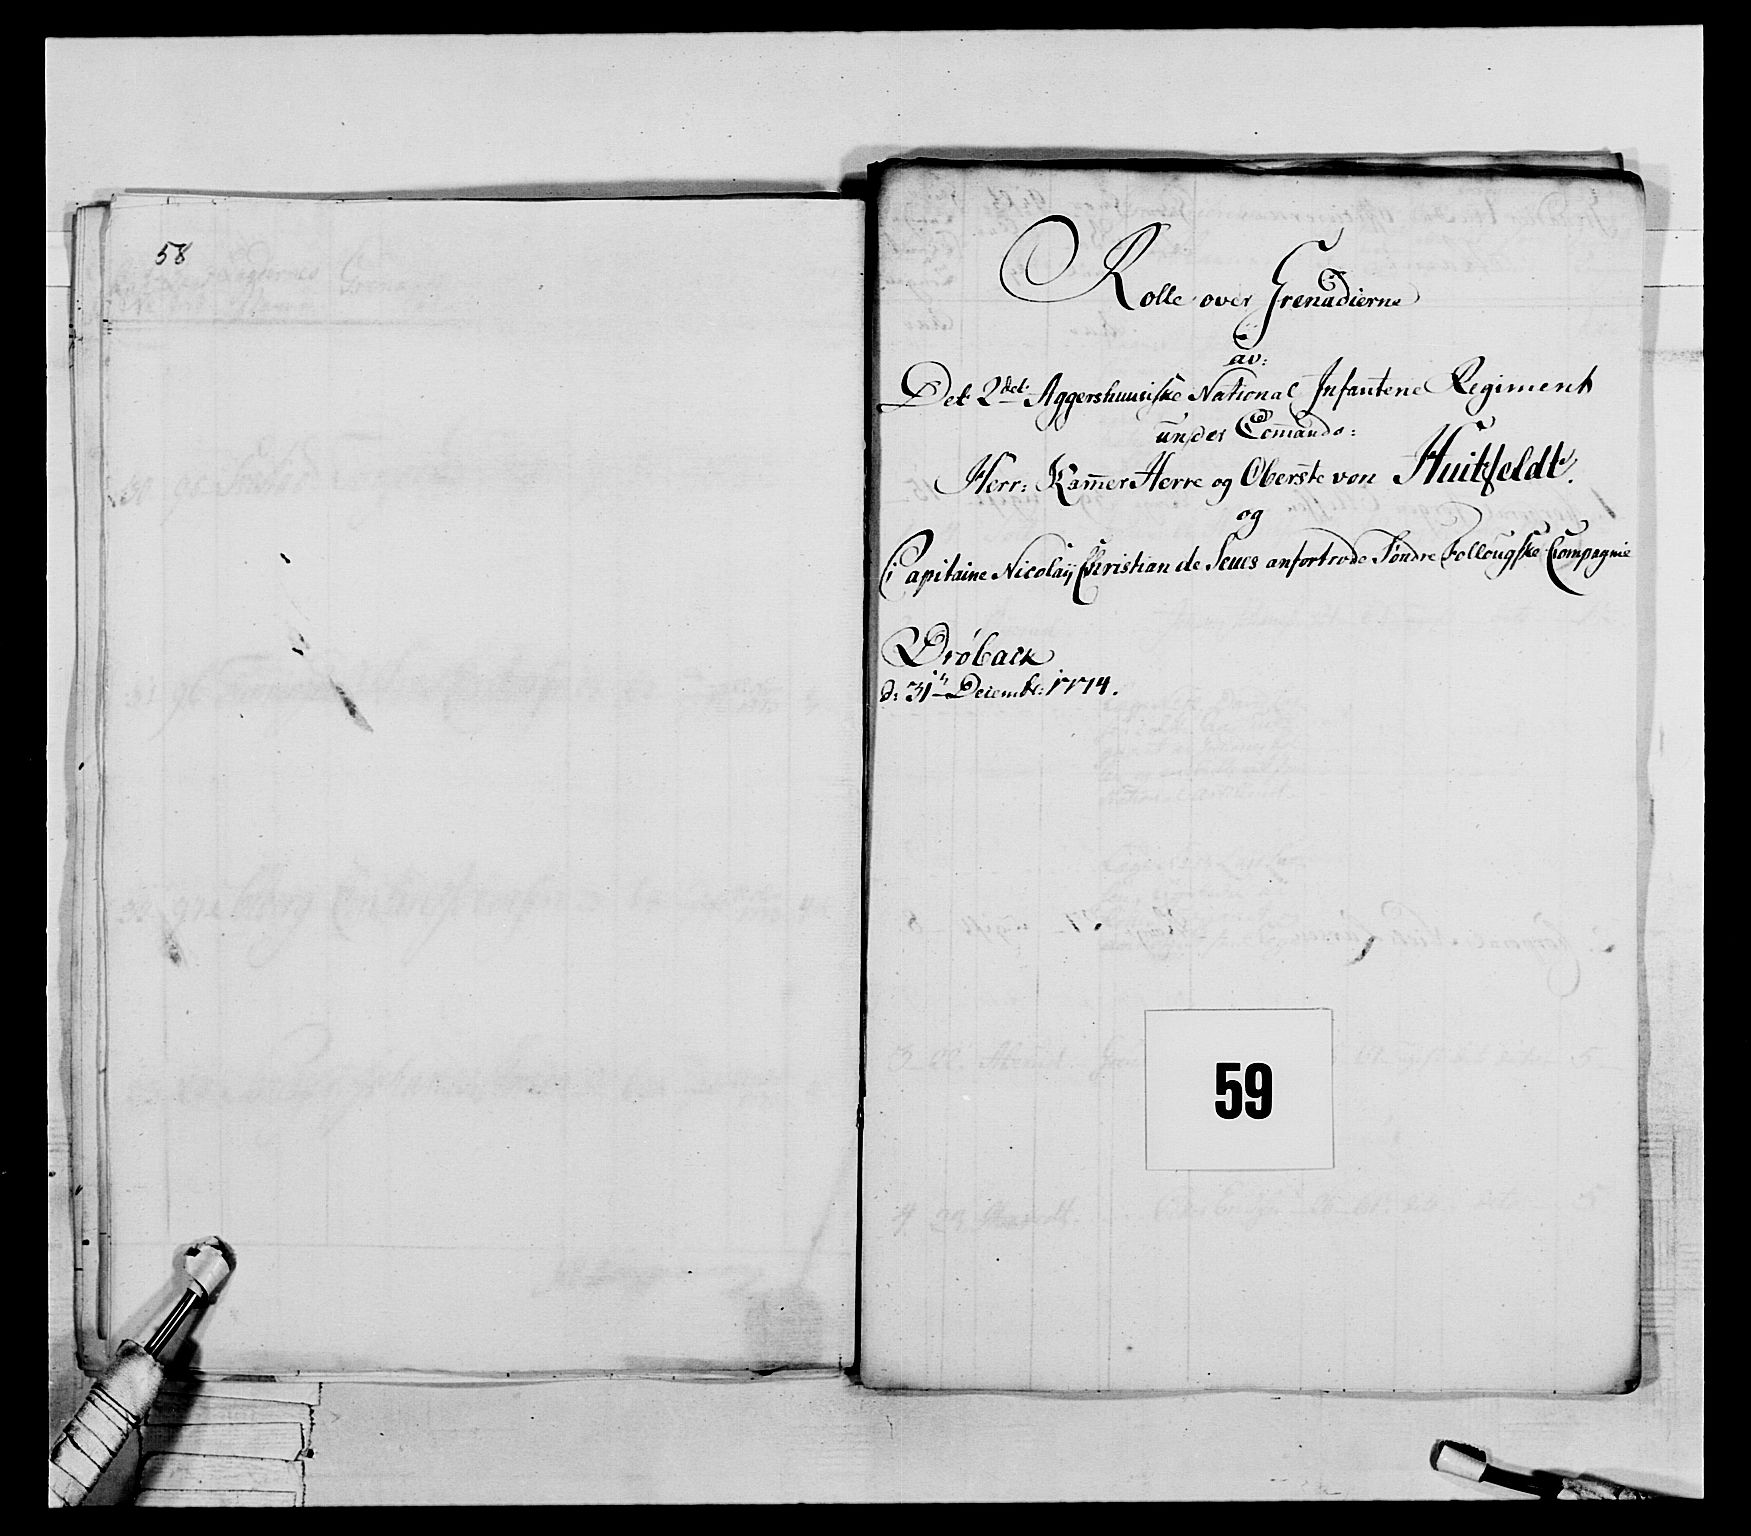 58
Rolle over Grenadierne
av:
Det 2det Aggershuusiske National Infanterie Regiment
under Comando:
Herr: Kam̄er Herre og Oberste von Huitfeldt.
og
Capitaine Nicolaÿ Christian de Seues anfortrode Søndre Follougske Compagnie
Drøback
d: 31te Decembr: 1774.
59